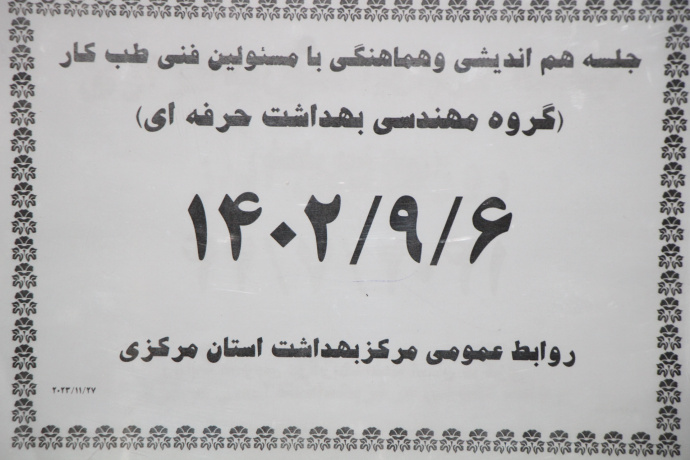 جلسه هم اندیشی وهماهنگی با مسئولین فنی طب کار
(گروه مهندسی بهداشت حرفه ای)
۱۴۰۲/۹/۶
روابط عمومی مرکزبهداشت استان مرکزی
۲۰۲۳/۱۱/۲۷